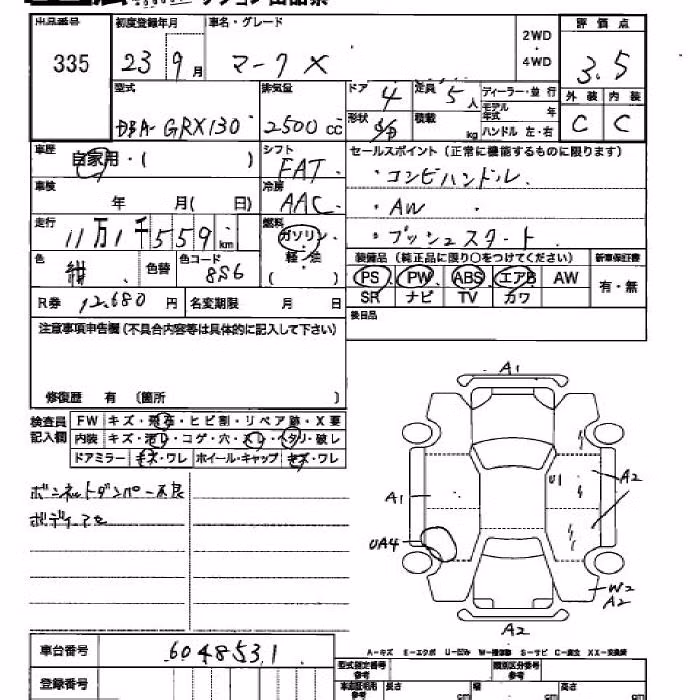 出品番号 初度登録年月 車名・グレード 2WD・4WD 評価点
335 23 9月 マークX 3.5
型式 排気量 ドア 4 定員 5人 ディーラー・並行 外装 内装
DBA-GRX130 2500cc 形状 積載 kg モデル年式 年 C C
ハンドル 左・右
車歴 自家用・( ) シフト FAT セールスポイント (正常に機能するものに限ります)
車検 年 月( 日) 冷房 AAC ・コンビハンドル
・AW ・
走行 11万1千559km 燃料 ガソリン ・プッシュスタート
色 紺 色替 色コード 8S6 軽・油 ( )
装備品 (純正品に限り○をつけてください) 新車保証書
PS PW ABS エアB AW 有・無
SR ナビ TV カワ
R券 12,680円 名変期限 月 日 後日品
注意事項申告欄 (不具合内容等は具体的に記入して下さい)
修復歴 有 〔箇所 〕
検査員記入欄
FW キズ・飛石・ヒビ割・リペア跡・X要
内装 キズ・汚レ・コゲ・穴・スレ・ヘタリ・破レ
ドアミラー キズ・ワレ ホイール・キャップ キズ・ワレ
ボンネットダンパー不良
A1
A1 U1 A2
UA4
W2
A2
A2
A-キズ E-エクボ U-凹み W-補修跡 S-サビ C-腐食 XX-交換済
車台番号 6048531
型式指定番号 参考 類別区分番号 参考
登録番号 長さ cm 幅 cm 高さ cm